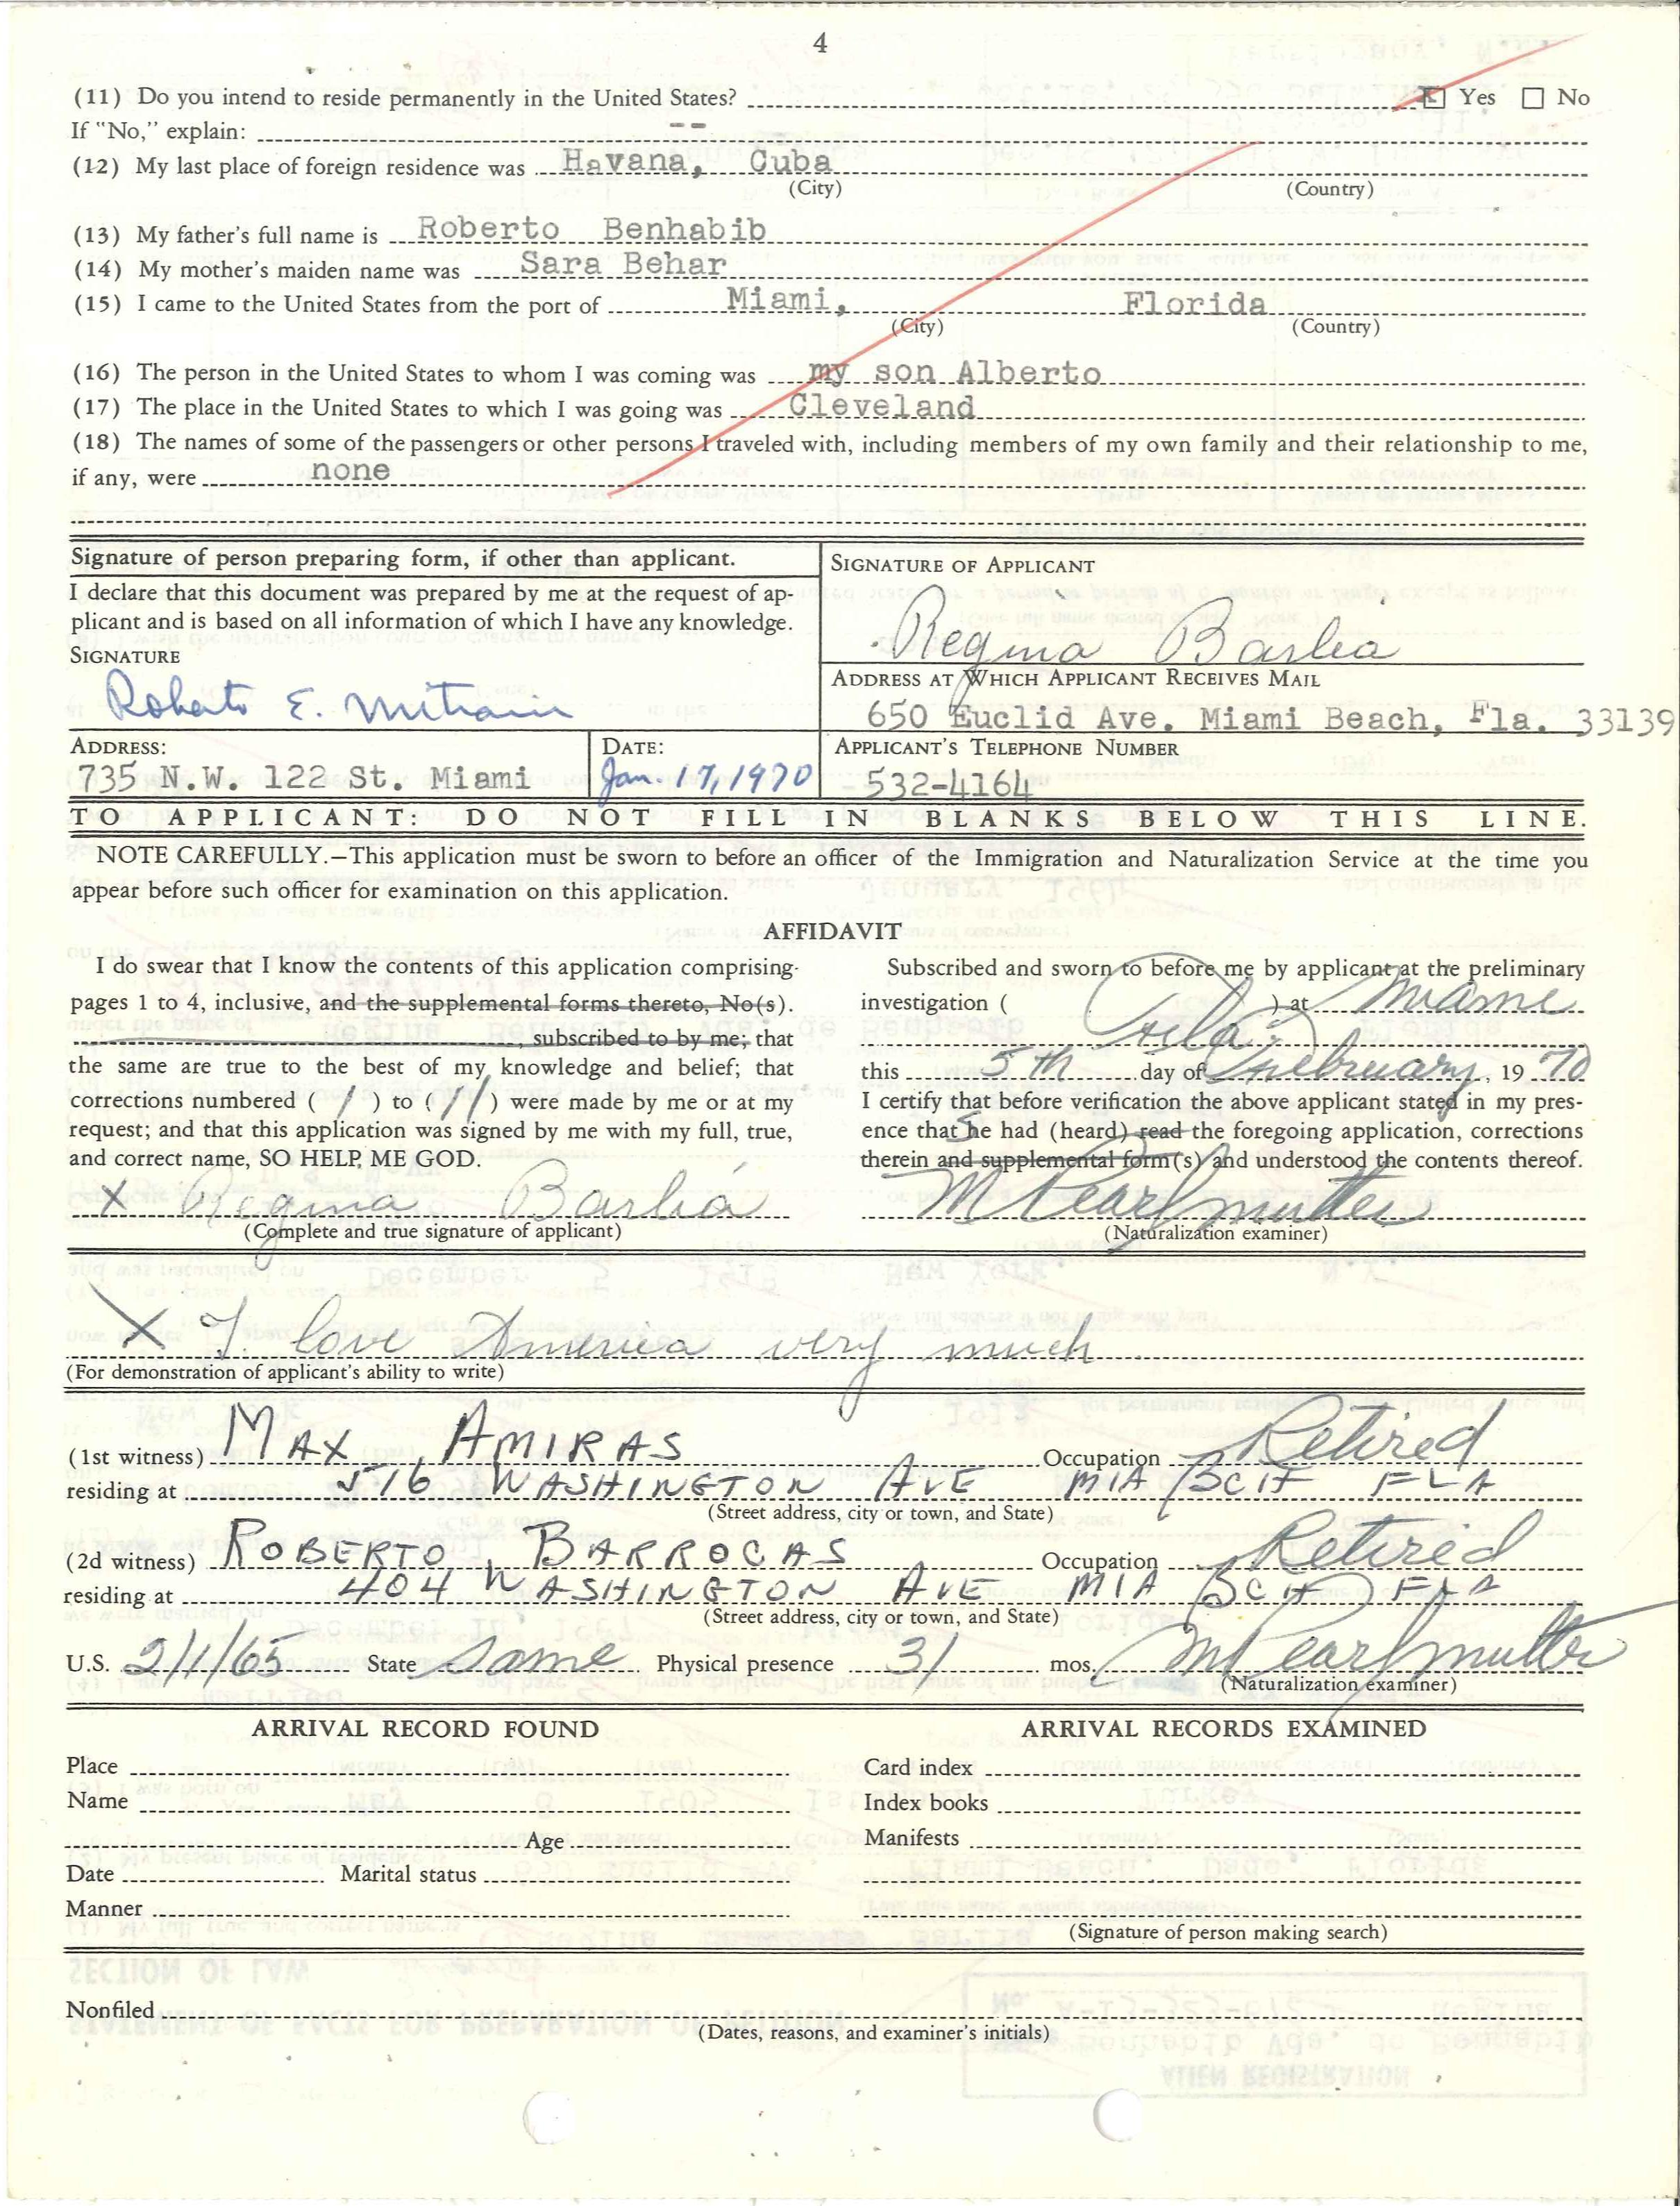 4
(11) Do you intend to reside permanently in the United States? X Yes ☐ No
If "No," explain: --
(12) My last place of foreign residence was Havana, Cuba
(City) (Country)
(13) My father's full name is Roberto Benhabib
(14) My mother's maiden name was Sara Behar
(15) I came to the United States from the port of Miami, Florida
(City) (Country)
(16) The person in the United States to whom I was coming was my son Alberto
(17) The place in the United States to which I was going was Cleveland
(18) The names of some of the passengers or other persons I traveled with, including members of my own family and their relationship to me,
if any, were none
Signature of person preparing form, if other than applicant.
I declare that this document was prepared by me at the request of ap-
plicant and is based on all information of which I have any knowledge.
SIGNATURE
Roberto E. Mitrani
ADDRESS:
735 N.W. 122 St. Miami
DATE:
Jan. 17, 1970
SIGNATURE OF APPLICANT
Regina Barlia
ADDRESS AT WHICH APPLICANT RECEIVES MAIL
650 Euclid Ave. Miami Beach, Fla. 33139
APPLICANT'S TELEPHONE NUMBER
532-4164
TO APPLICANT: DO NOT FILL IN BLANKS BELOW THIS LINE.
NOTE CAREFULLY.—This application must be sworn to before an officer of the Immigration and Naturalization Service at the time you
appear before such officer for examination on this application.
AFFIDAVIT
I do swear that I know the contents of this application comprising
pages 1 to 4, inclusive, and the supplemental forms thereto, No(s).
, subscribed to by me; that
the same are true to the best of my knowledge and belief; that
corrections numbered ( 1 ) to ( 11 ) were made by me or at my
request; and that this application was signed by me with my full, true,
and correct name, SO HELP ME GOD.
X Regina Barliá
(Complete and true signature of applicant)
Subscribed and sworn to before me by applicant at the preliminary
investigation ( ) at Miami
Fla.
this 5th day of February, 19 70
I certify that before verification the above applicant stated in my pres-
ence that She had (heard) read the foregoing application, corrections
therein and supplemental form(s) and understood the contents thereof.
M Pearlmutter
(Naturalization examiner)
X I love America very much
(For demonstration of applicant's ability to write)
(1st witness) MAX AMIRAS Occupation Retired
residing at 516 WASHINGTON AVE MIA BCH FLA
(Street address, city or town, and State)
(2d witness) ROBERTO BARROCAS Occupation Retired
residing at 404 WASHINGTON AVE MIA BCH FLA
(Street address, city or town, and State)
U.S. 2/1/65 State Same Physical presence 31 mos. M Pearlmutter
(Naturalization examiner)
ARRIVAL RECORD FOUND
Place
Name
Age
Date Marital status
Manner
ARRIVAL RECORDS EXAMINED
Card index
Index books
Manifests
(Signature of person making search)
Nonfiled
(Dates, reasons, and examiner's initials)